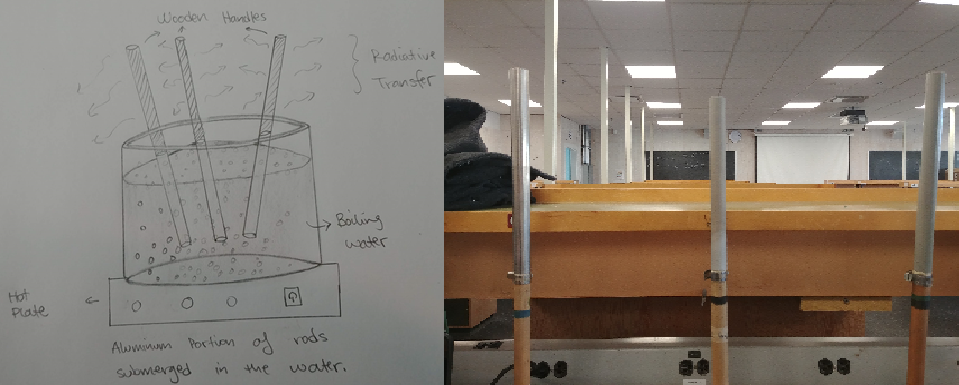 Wooden Handles
Radiative
Transfer
Boiling
water
Hot
Plate
Aluminum Portion of rods
submerged in the water.